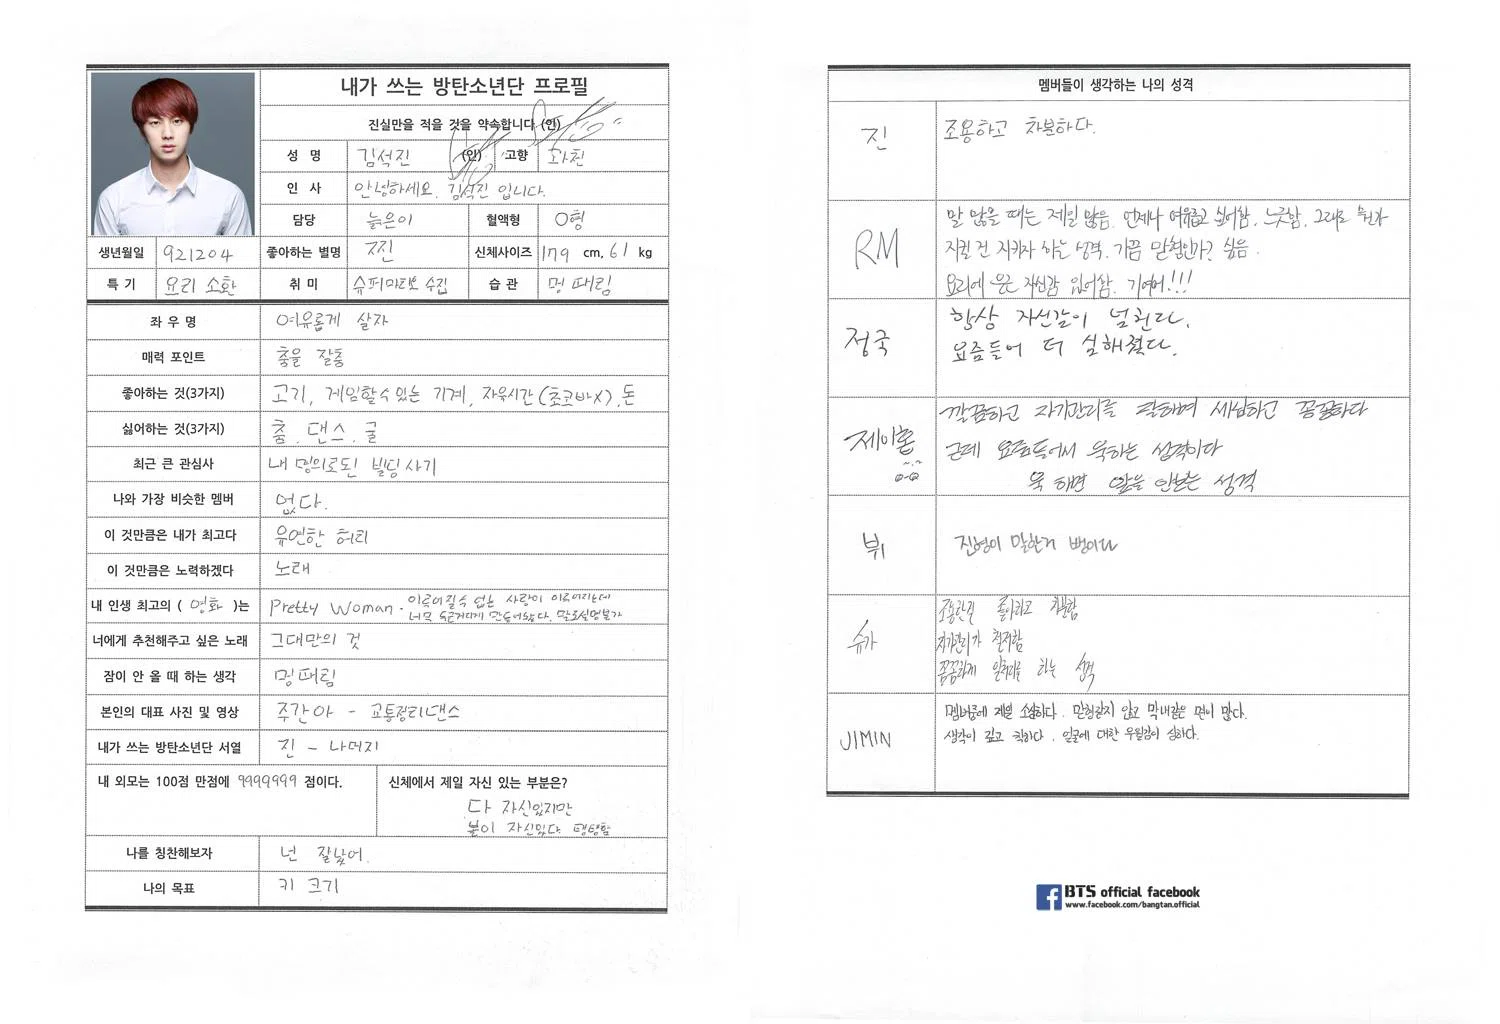 내가 쓰는 방탄소년단 프로필
진실만을 적을 것을 약속합니다 (인)
성 명 김석진 (인) 고향 과천
인 사 안녕하세요. 김석진 입니다.
담당 늙은이 혈액형 O형
생년월일 921204 좋아하는 별명 찐 신체사이즈 179 cm, 61 kg
특 기 요리 소환 취 미 슈퍼마리오 수집 습 관 멍 때림
좌 우 명 여유롭게 살자
매력 포인트 춤을 잘춤
좋아하는 것(3가지) 고기, 게임할 수 있는 기계, 자유시간(초코바X), 돈
싫어하는 것(3가지) 춤, 댄스, 굴
최근 큰 관심사 내 명의로된 빌딩사기
나와 가장 비슷한 멤버 없다.
이 것만큼은 내가 최고다 유연한 허리
이 것만큼은 노력하겠다 노래
내 인생 최고의 ( 영화 )는 Pretty Woman. 이루어질 수 없는 사랑이 이루어지는데
너무 두근거리게 만들어놨다. 말로설명불가
너에게 추천해주고 싶은 노래 그대만의 것
잠이 안 올 때 하는 생각 멍때림
본인의 대표 사진 및 영상 주간아 - 교통정리댄스
내가 쓰는 방탄소년단 서열 진 - 나머지
내 외모는 100점 만점에 9999999 점이다.
신체에서 제일 자신 있는 부분은?
다 자신있지만
볼이 자신있다. 탱탱함
나를 칭찬해보자 넌 잘났어.
나의 목표 키 크기
멤버들이 생각하는 나의 성격
진 조용하고 차분하다.
RM 말 많을 때는 제일 많음. 언제나 여유롭고 싶어함. 느긋함. 그대로 뭔가
지킬 건 지키자 하는 성격. 가끔 맏형인가? 싶음.
요리에 은근 자신감 있어함. 기여어!!!
정국 항상 자신감이 넘친다.
요즘들어 더 심해졌다.
제이홉 깔끔하고 자기관리를 잘하며 세심하고 꼼꼼하다
근데 요즘들어서 욱하는 성격이다
욱 하면 앞을 안보는 성격
뷔 진형이 말한거 뻥이다
슈가 조용한걸 좋아하고 차분함
자기관리가 철저함
꼼꼼하게 일처리를 하는 성격
JIMIN 멤버중에 제일 소심하다. 맏형같지 않고 막내같은 면이 많다.
생각이 깊고 착하다. 얼굴에 대한 우월감이 심하다.
BTS official facebook
www.facebook.com/bangtan.official